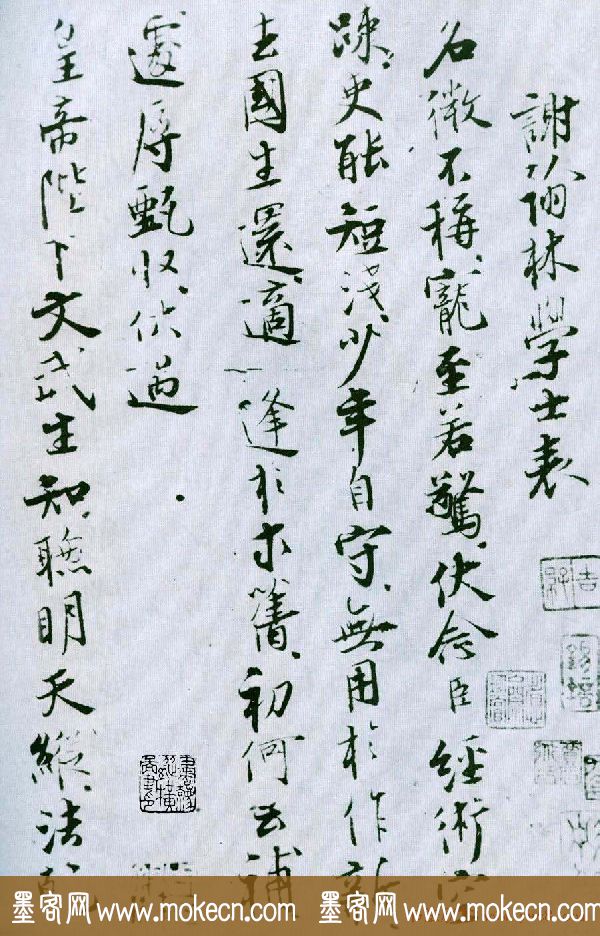 謝翰林學士表
名微不稱寵至若驚伏念臣經術空
踈史能短淺少年自守無用於作新
去國生還適逢於求舊初何云補
遽辱甄收伏遇
皇帝陛下文武生知聰明天縱法
墨客网 www.mokecn.com 墨客网 www.mokecn.com